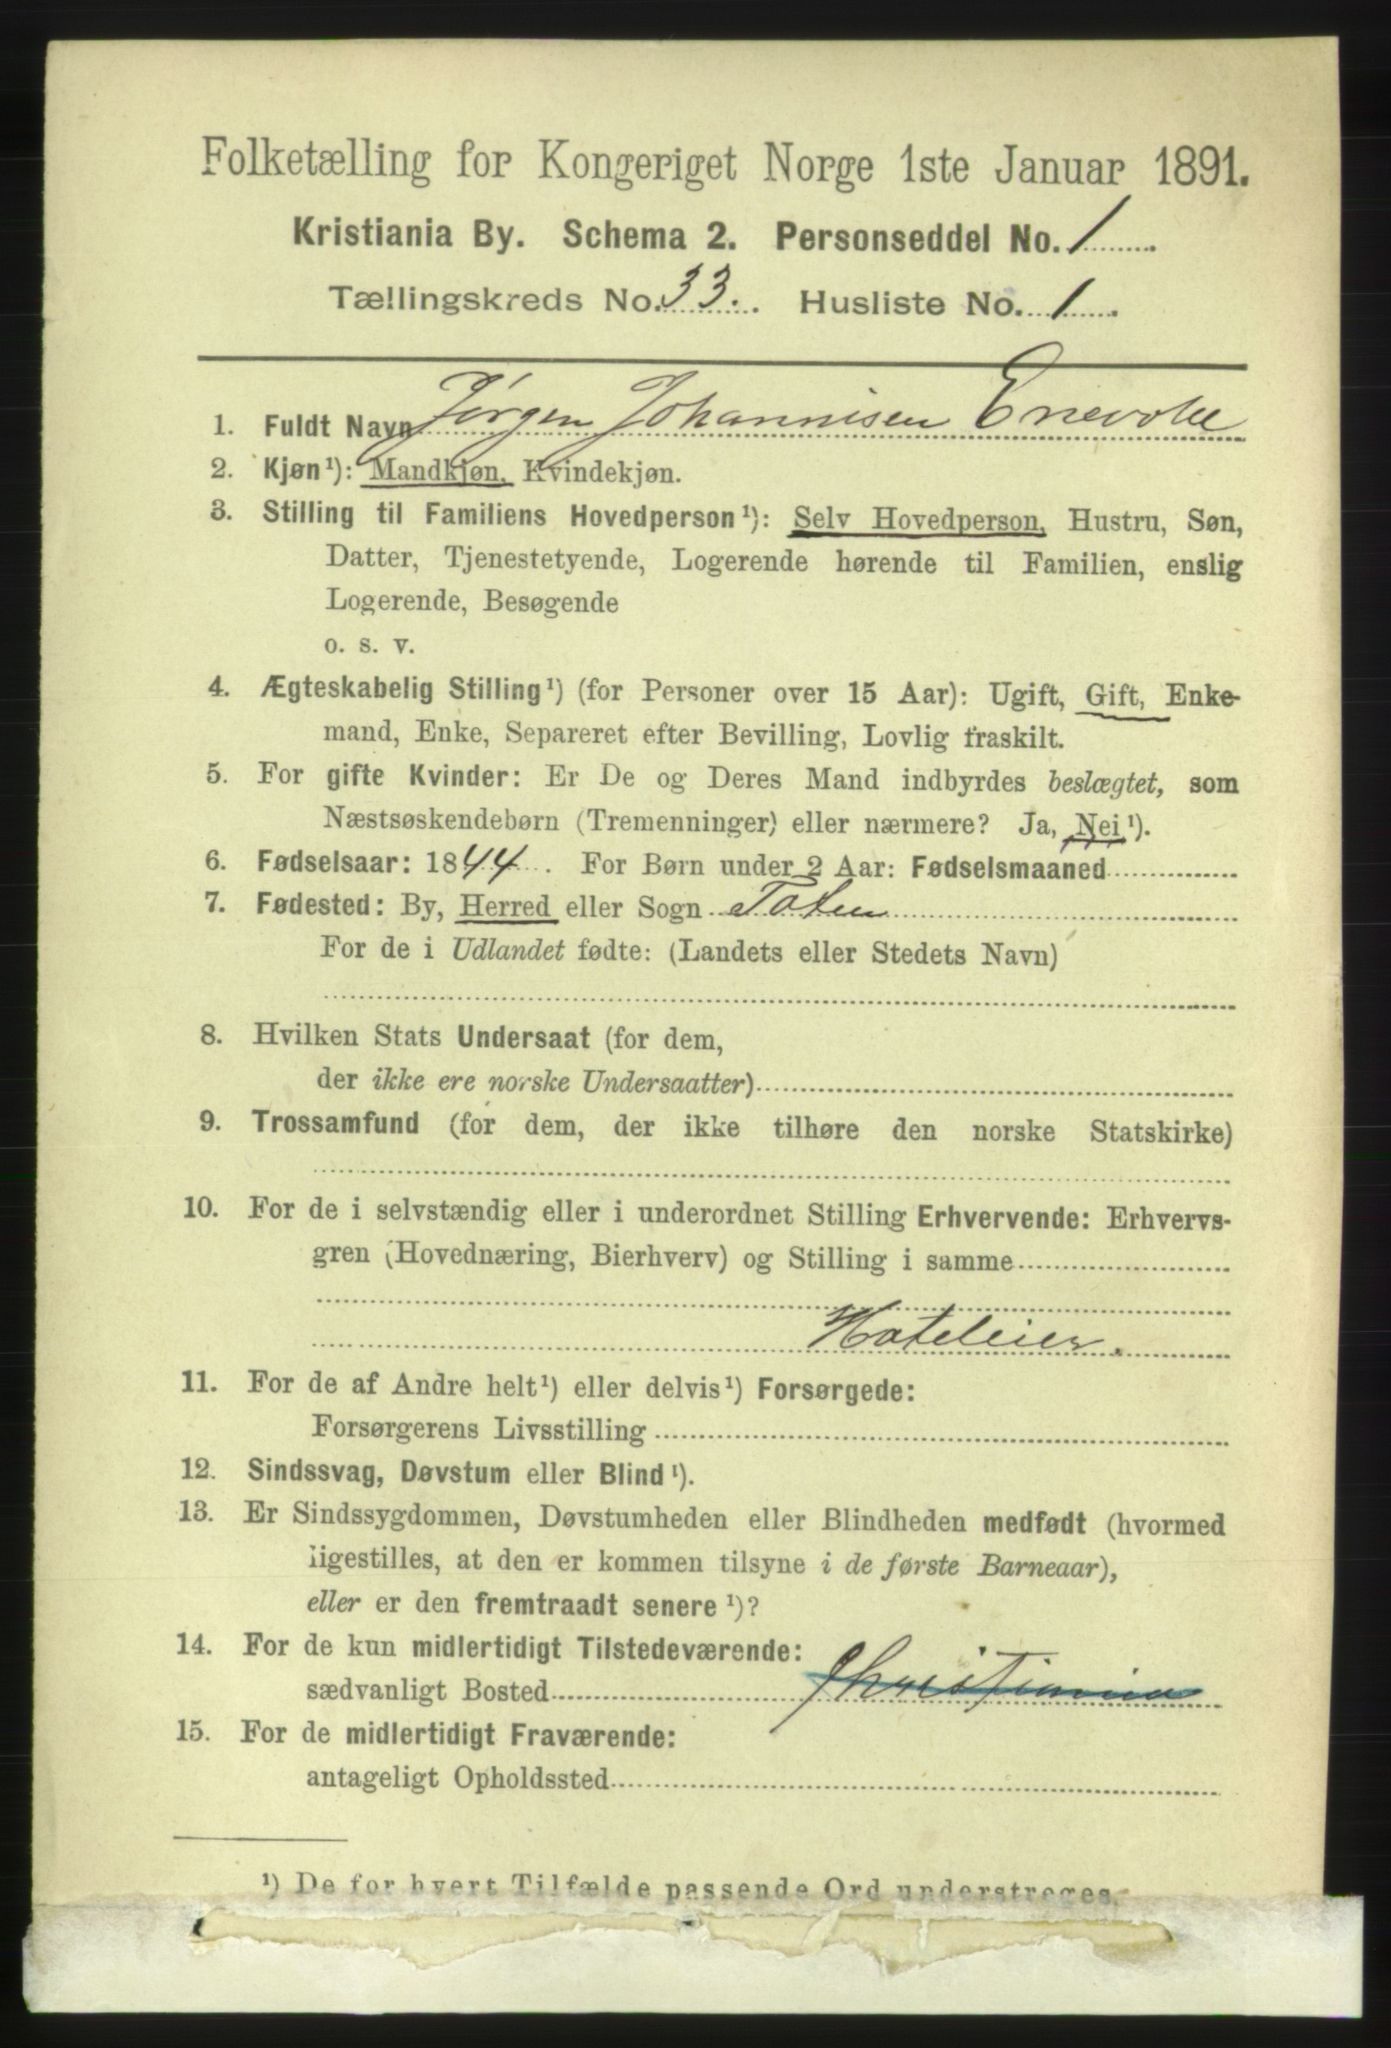 Folketælling for Kongeriget Norge 1ste Januar 1891.
Kristiania By. Schema 2. Personseddel No. 1
Tællingskreds No. 33. Husliste No. 1
1. Fuldt Navn Jørgen Johannisen Enevolle
2. Kjøn ¹): Mandkjøn, Kvindekjøn.
3. Stilling til Familiens Hovedperson ¹): Selv Hovedperson, Hustru, Søn,
Datter, Tjenestetyende, Logerende hørende til Familien, enslig
Logerende, Besøgende
o. s. v.
4. Ægteskabelig Stilling ¹) (for Personer over 15 Aar): Ugift, Gift, Enke-
mand, Enke, Separeret efter Bevilling, Lovlig fraskilt.
5. For gifte Kvinder: Er De og Deres Mand indbyrdes beslægtet, som
Næstsøskendebørn (Tremenninger) eller nærmere? Ja, Nei ¹).
6. Fødselsaar: 1844. For Børn under 2 Aar: Fødselsmaaned
7. Fødested: By, Herred eller Sogn Toten
For de i Udlandet fødte: (Landets eller Stedets Navn)
8. Hvilken Stats Undersaat (for dem,
der ikke ere norske Undersaatter)
9. Trossamfund (for dem, der ikke tilhøre den norske Statskirke)
10. For de i selvstændig eller i underordnet Stilling Erhvervende: Erhvervs-
gren (Hovednæring, Bierhverv) og Stilling i samme
Hoteleier.
11. For de af Andre helt ¹) eller delvis ¹) Forsørgede:
Forsørgerens Livsstilling
12. Sindssvag, Døvstum eller Blind ¹).
13. Er Sindssygdommen, Døvstumheden eller Blindheden medfødt (hvormed
ligestilles, at den er kommen tilsyne i de første Barneaar),
eller er den fremtraadt senere ¹)?
14. For de kun midlertidigt Tilstedeværende:
sædvanligt Bosted Christiania
15. For de midlertidigt Fraværende:
antageligt Opholdssted
¹) De for hvert Tilfælde passende Ord understreges.